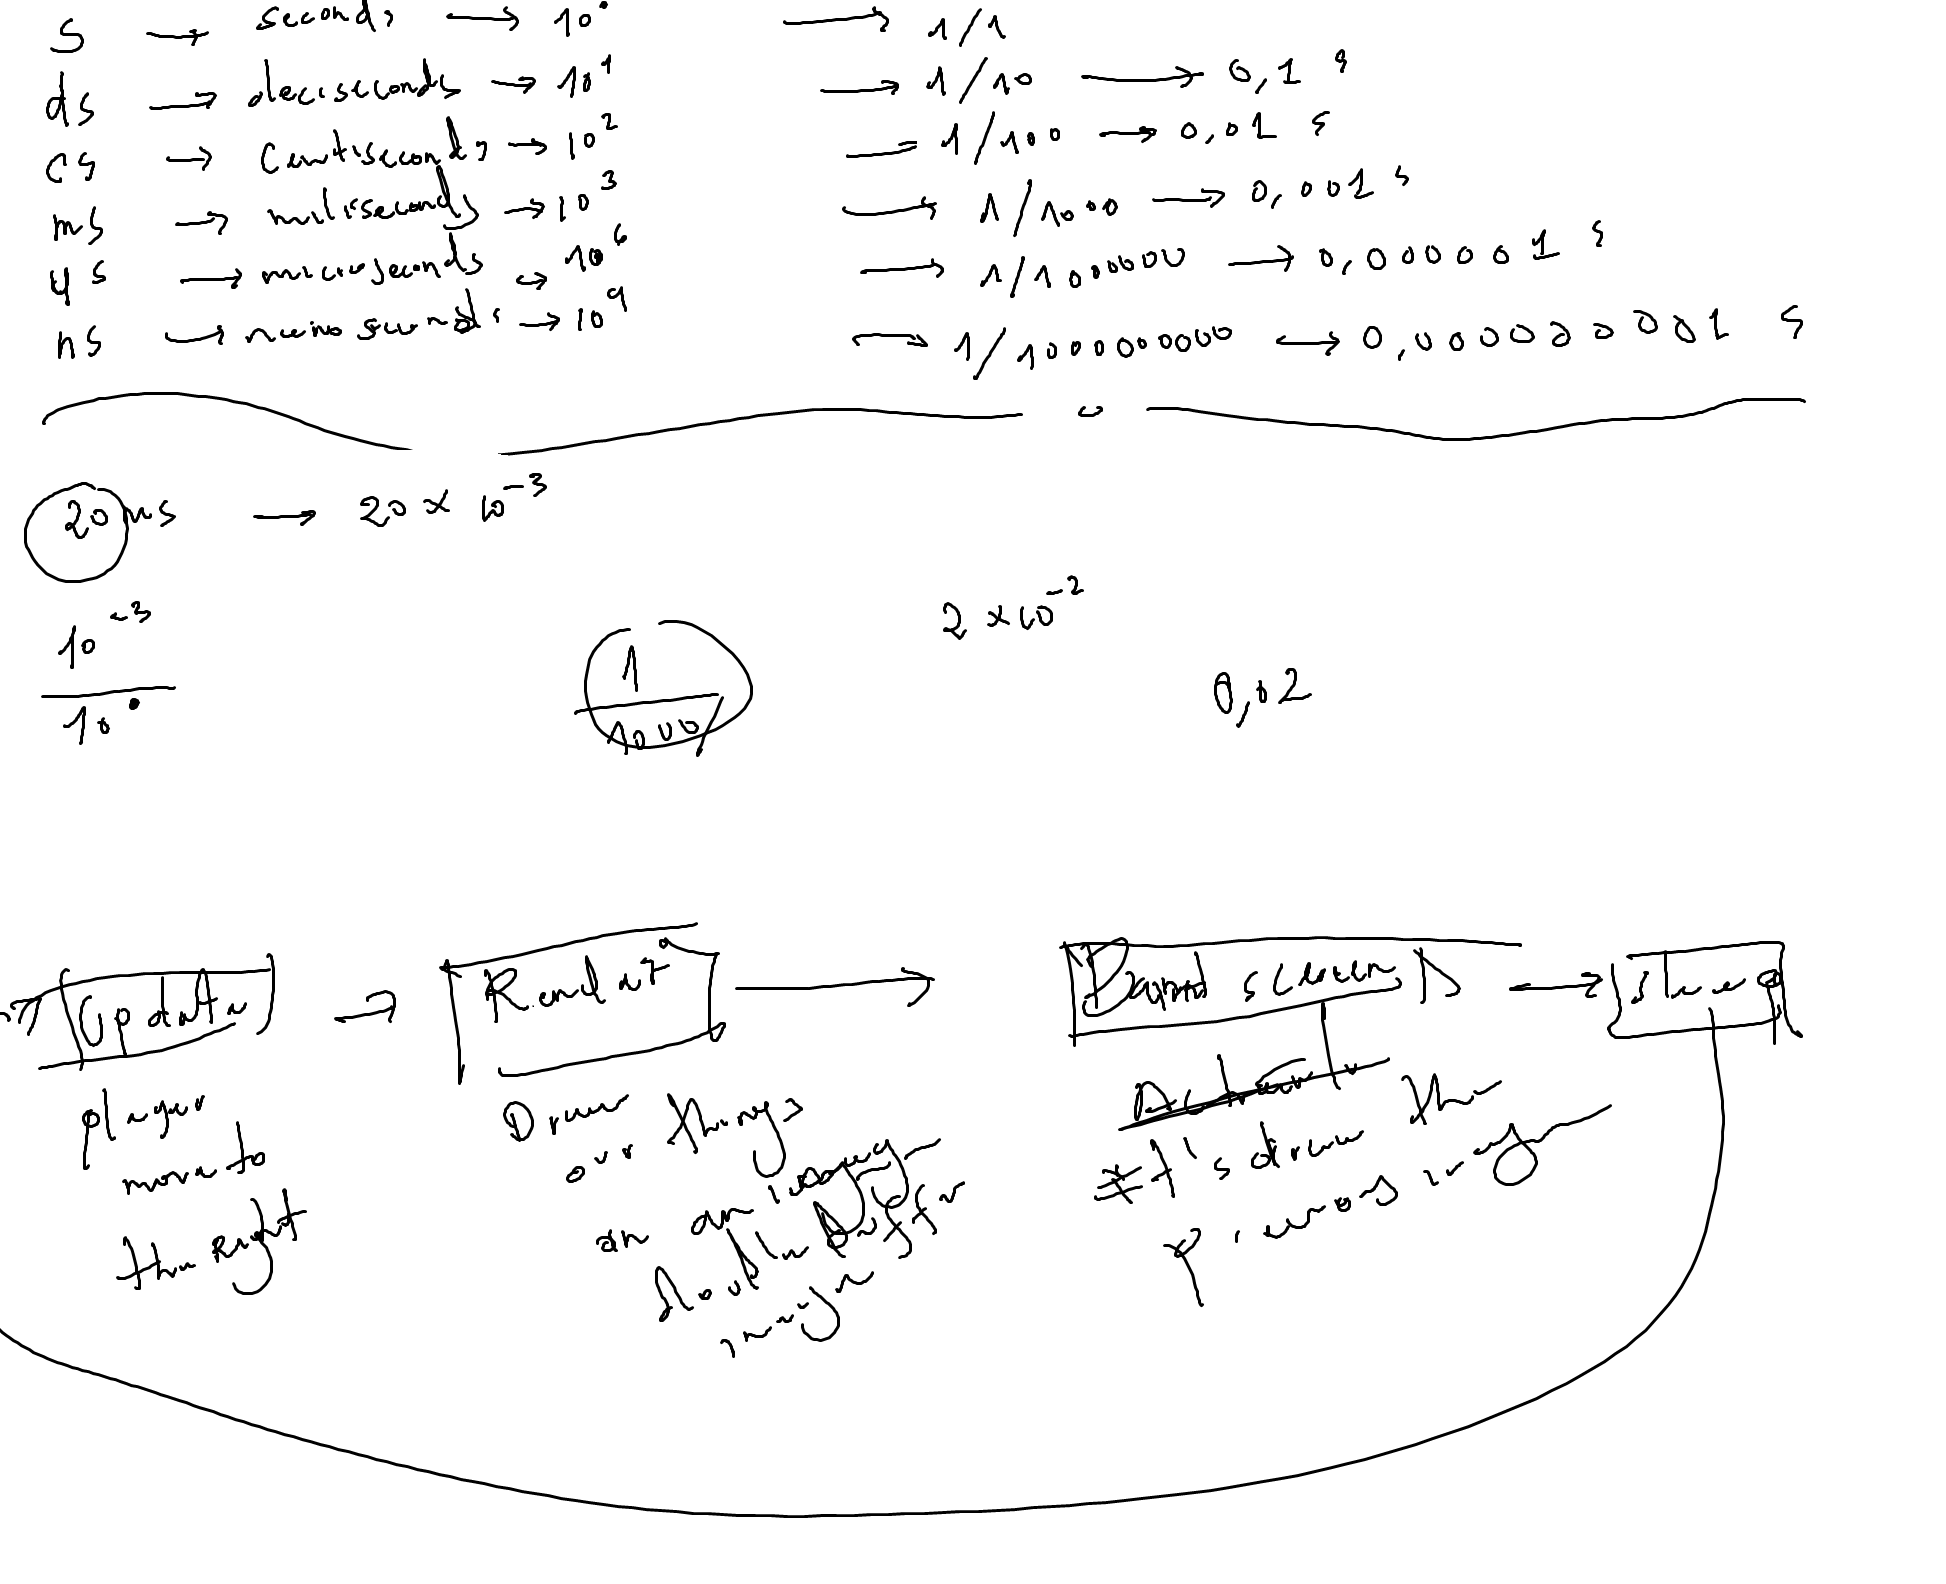 s → seconds → 10⁰ → 1/1
ds → deciseconds → 10¹ → 1/10 → 0,1 s
cs → Centiseconds → 10² = 1/100 → 0,01 s
ms → miliseconds → 10³ → 1/1000 → 0,001 s
μs → microseconds → 10⁶ → 1/1000000 → 0,000001 s
ns → nanoseconds → 10⁹ → 1/1000000000 → 0,000000001 s
20 ms → 20 × 10⁻³
10⁻³
10⁰
1
1000
2 × 10⁻²
0,02
Update → Render → screen → sleep
player
move to
the Right
Draw
our things
on an image
double buffer
image
It's draw the
image